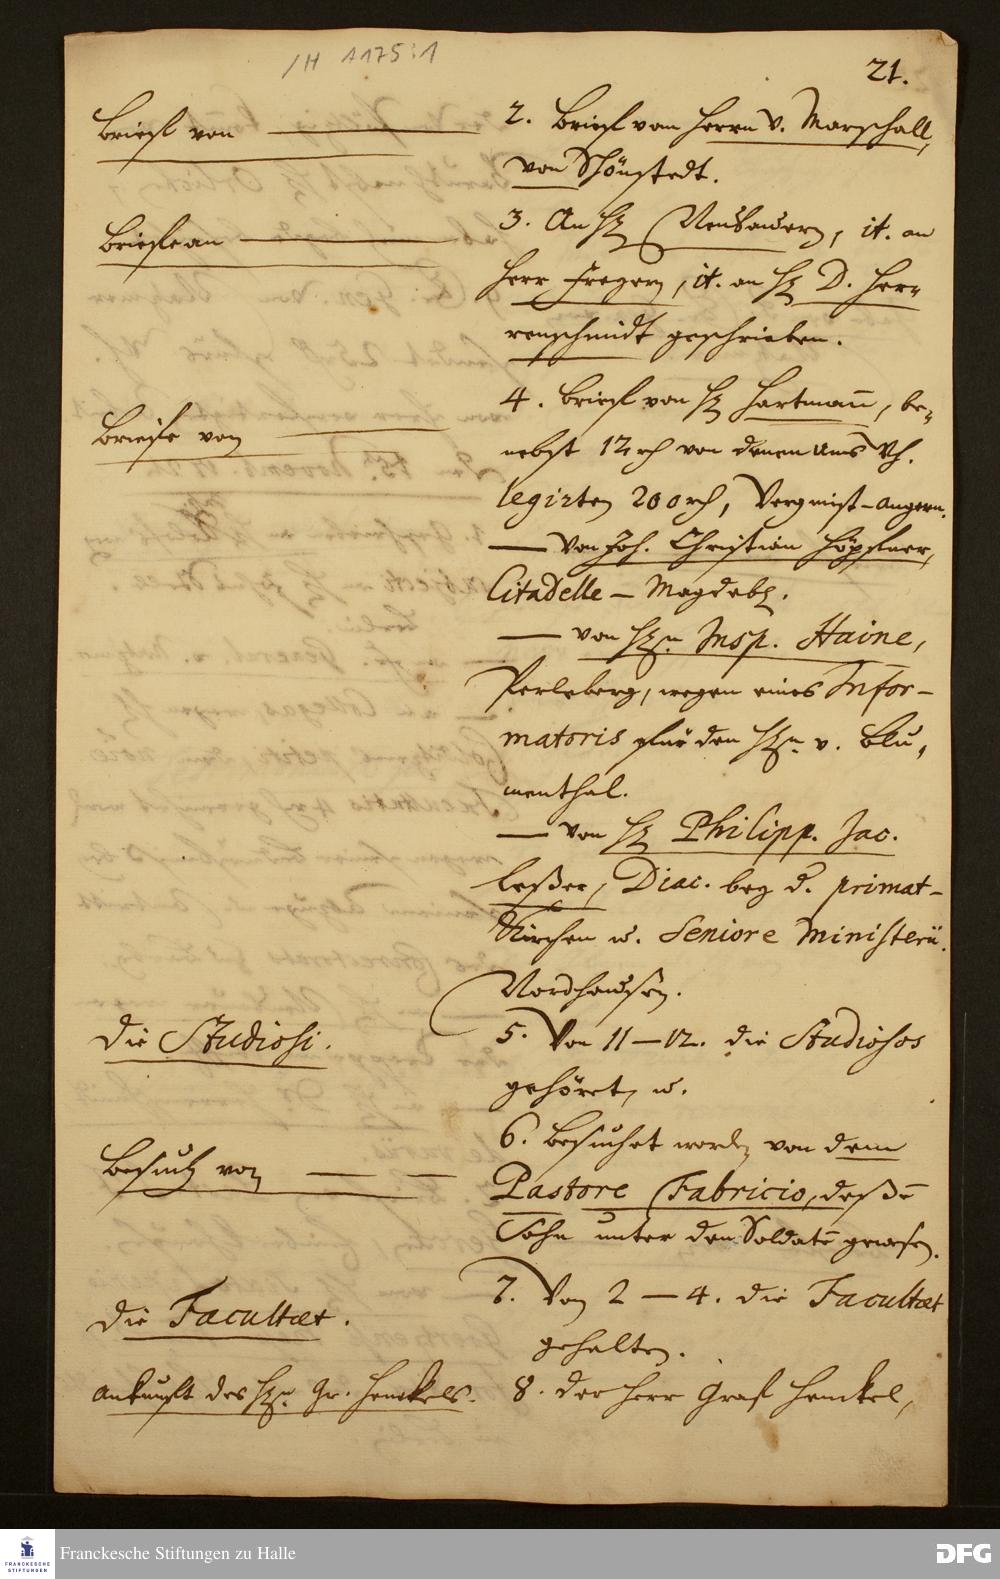 /H A175:1
21.
Briefe von
2. Briefe vom Herrn v. Marschall,
von Schönstedt.
Briefe an
3. An H. Neubauern, it. an
Herr Fregern, it. an H. D. Her-
renschmidt geschrieben.
Briefe von
4. Briefe von H. Hartmann, be-
nebst 12 rh von denen uns
legirten 200 rh, Angern.
— von Joh. Christian Höpfner,
Citadelle – Magdeb.
— von Hn. Insp. Haine,
Perleberg, wegen eines Infor-
matoris für den Hn. v. Blu-
menthal.
— von H. Philipp. Jac.
Leßer, Diac. bey d. primat-
Kirchen u. Seniore Ministerii.
Nordhausen.
Die Studiosi.
5. Von 11 – 12. die Studiosos
gehöret, u.
Besuch von
6. Besuchet worden von dem
Pastore Fabricio, deßen
Sohn unter den Soldaten gewesen.
Die Facultaet.
7. Von 2 – 4. die Facultaet
gehalten.
Ankunfft des Hn. Gr. Henckels.
8. der Herr Graf Henckel,
Franckesche Stiftungen zu Halle
FRANCKESCHE
STIFTUNGEN
DFG